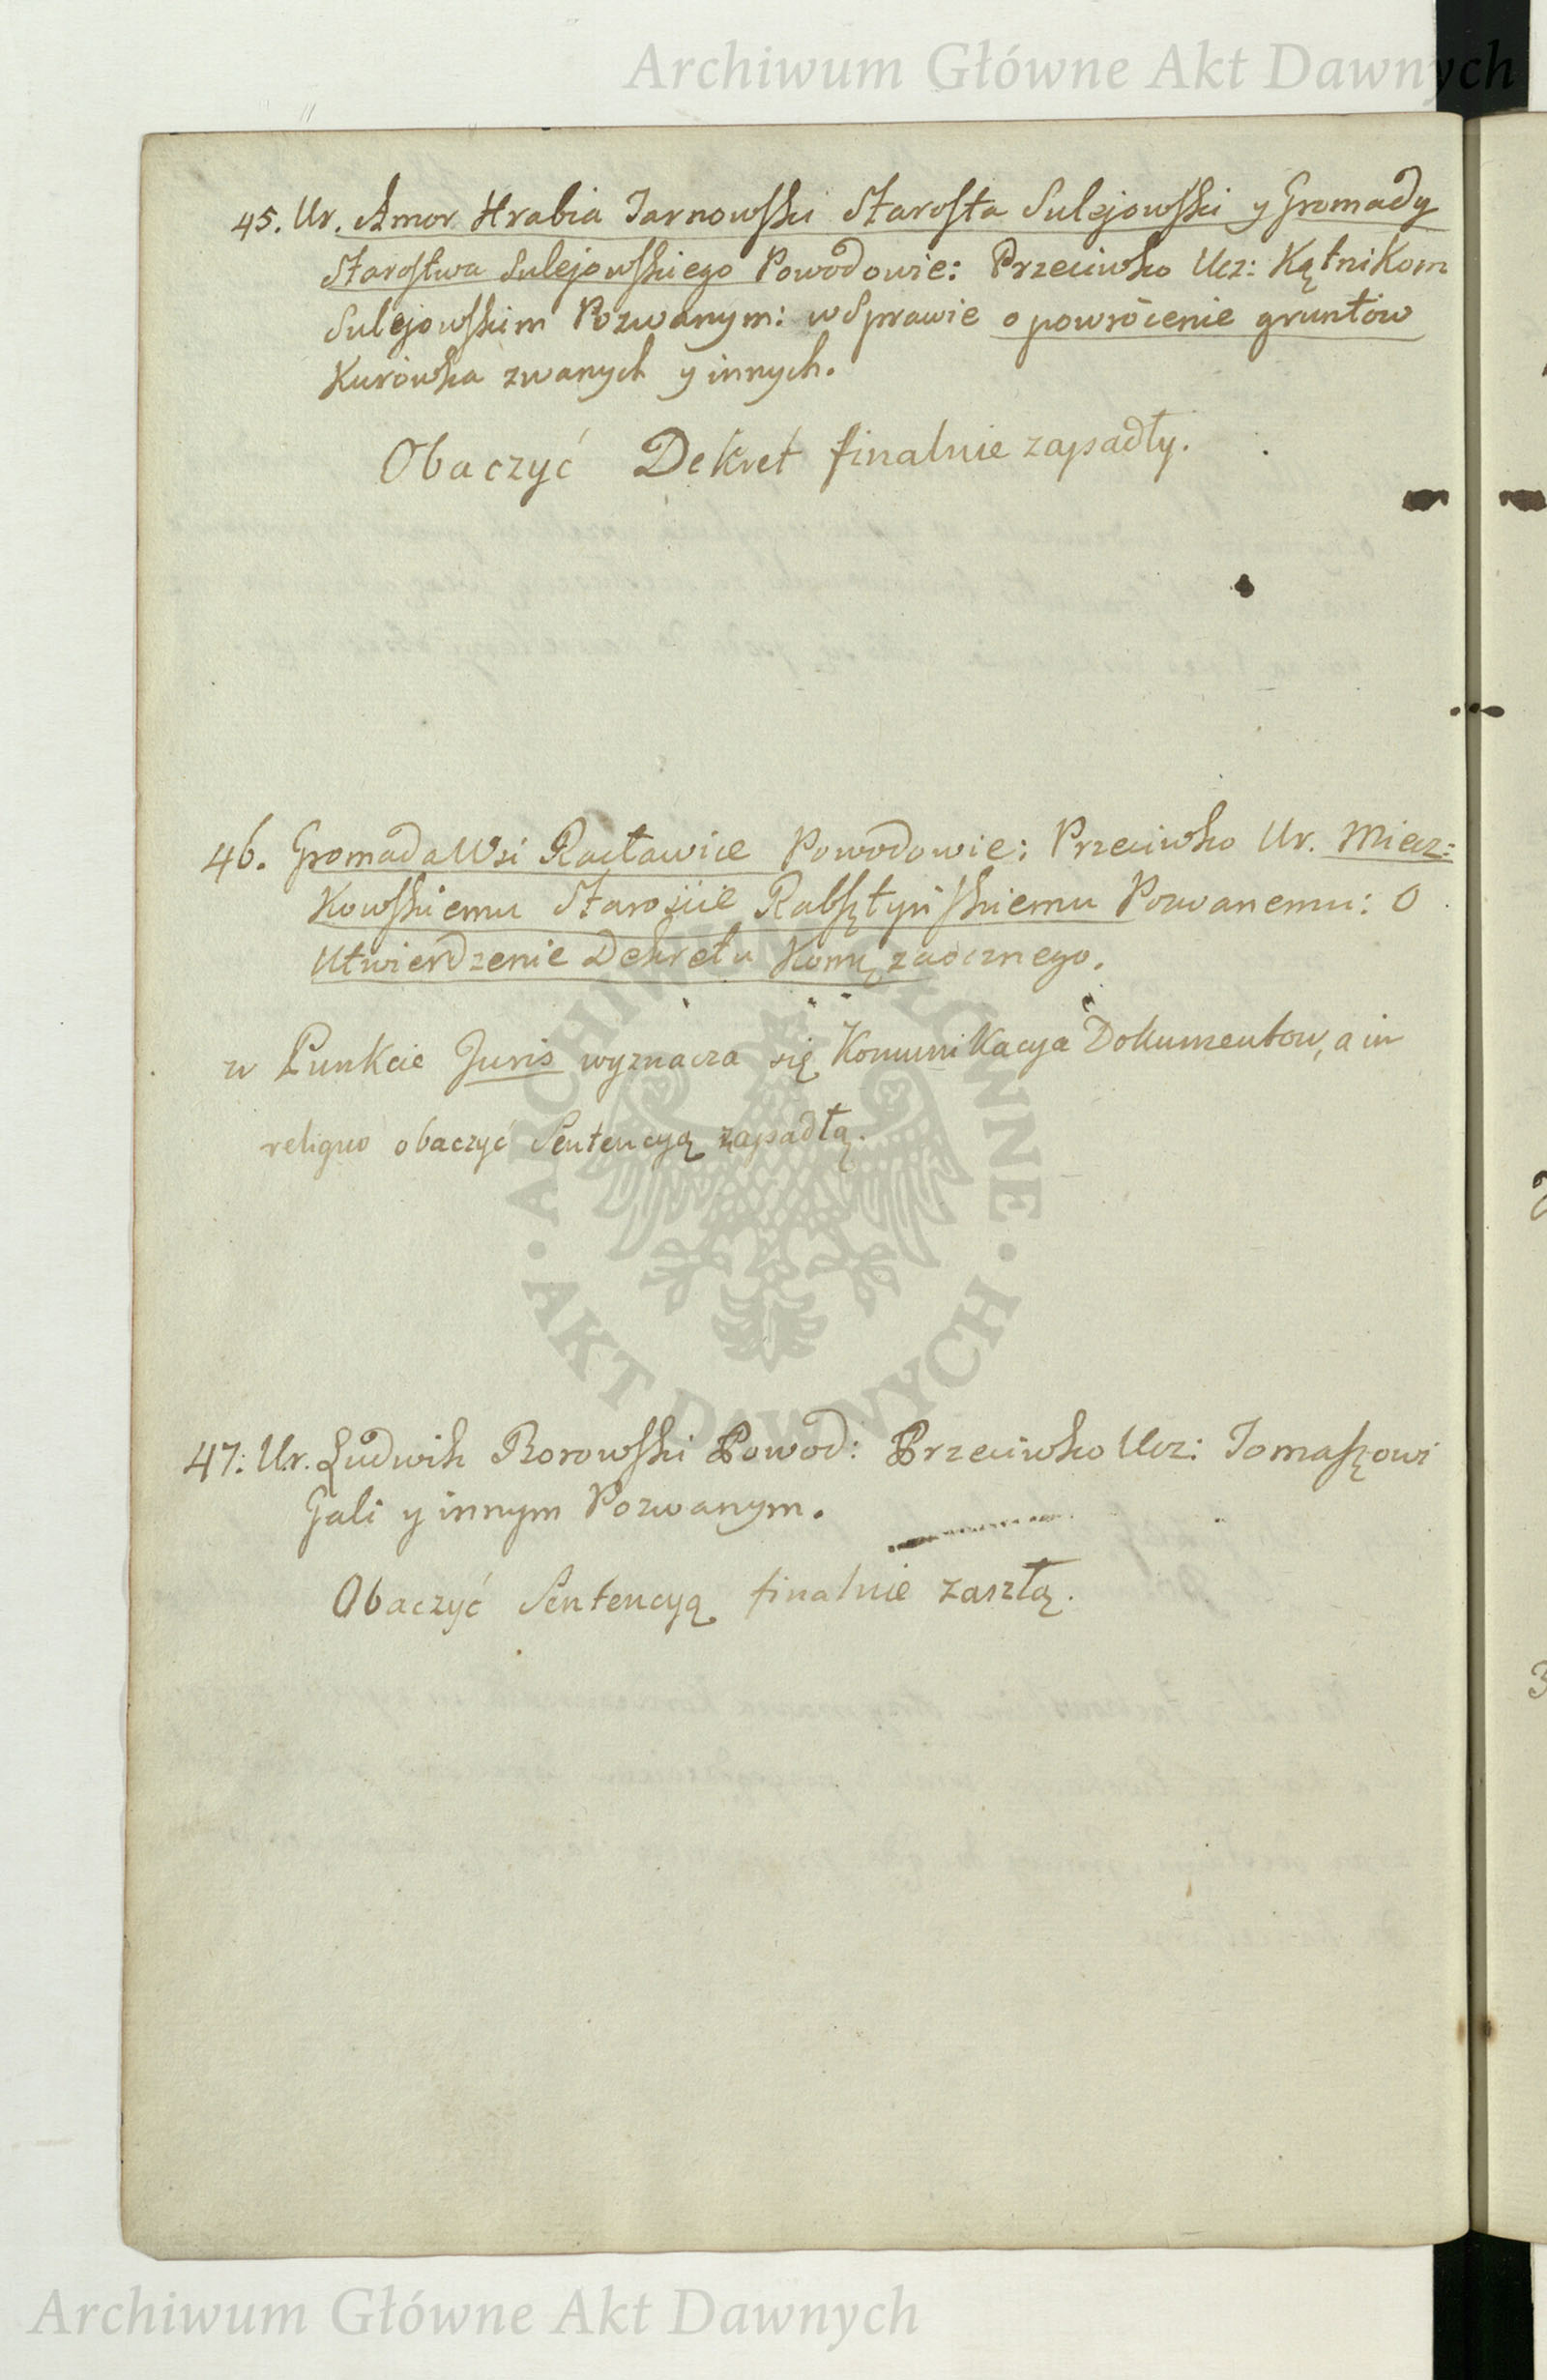 Archiwum Główne Akt Dawnych
45. Ur. Amor Hrabia Tarnowski Starosta Sulejowski y Gromady
Starostwa Sulejowskiego Powodowie: Przeciwko Ucz: Kątnikom
Sulejowskim Pozwanym: w Sprawie o powrócenie gruntów
Kurówka zwanych y innych.
Obaczyć Dekret finalnie zapadły.
46. Gromada Wsi Racławice Powodowie: Przeciwko Ur. Miecz:
kowskiemu Staroście Rabsztyńskiemu Pozwanemu: O
Utwierdzenie Dekretu Kom: zaocznego.
w Punkcie Juris wyznacza się Komunikacya Dokumentow, a in
reliquo obaczyć Sentencyą zapadłą.
47: Ur. Ludwik Borowski Powod: Przeciwko Ucz: Tomaszowi
Gali y innym Pozwanym.
Obaczyć Sentencyą finalnie zaszłą.
ARCHIWUM GŁÓWNE
AKT DAWNYCH
Archiwum Główne Akt Dawnych